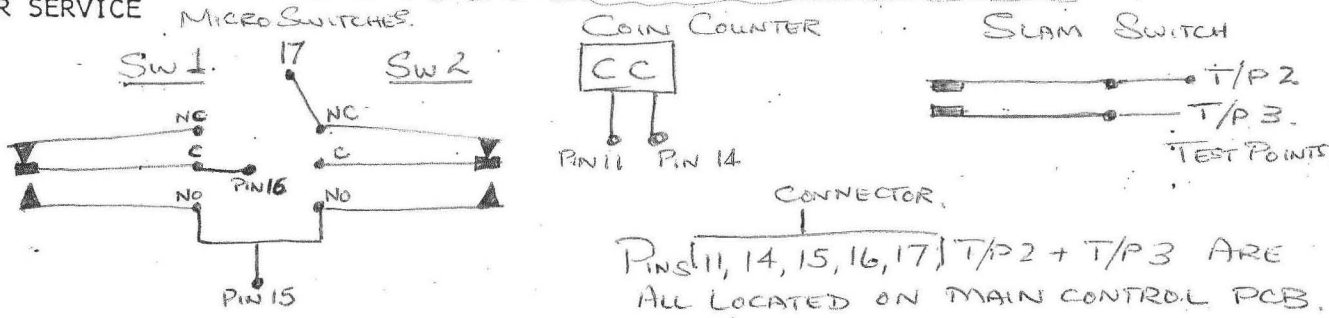 R SERVICE
MICRO SWITCHES.
SW 1.
17
SW 2
NC
NC
C
C
PIN 16
NO
NO
PIN 15
COIN COUNTER
CC
PIN 11 PIN 14
SLAM SWITCH
T/P 2
T/P 3.
TEST POINTS
CONNECTOR.
PINS 11, 14, 15, 16, 17, T/P2 + T/P3 ARE
ALL LOCATED ON MAIN CONTROL PCB.